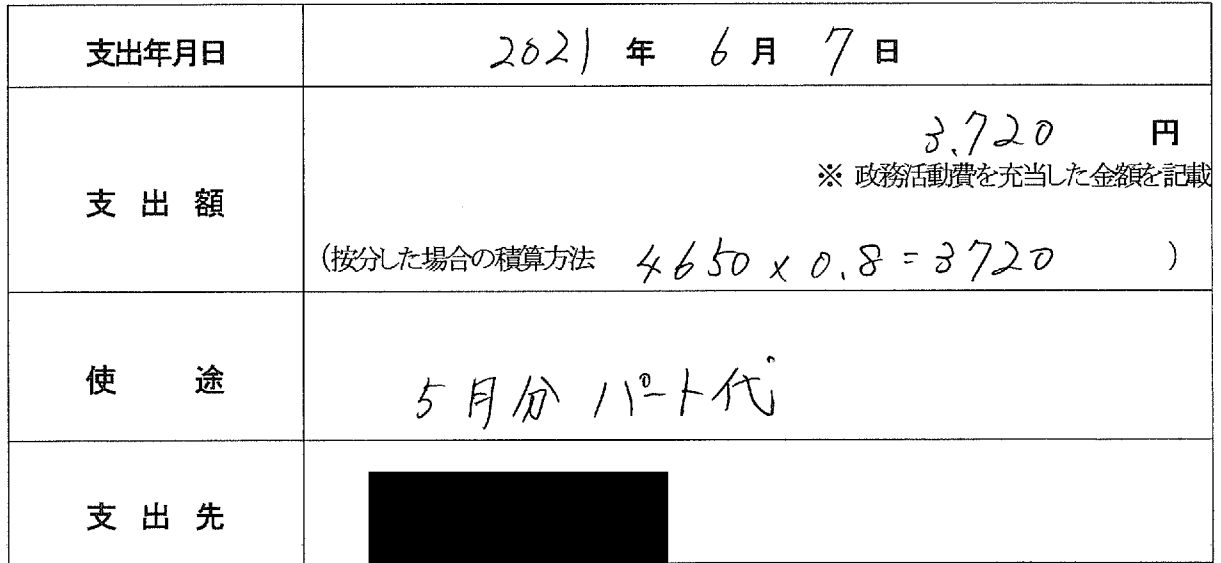 支出年月日 2021 年 6 月 7 日
3,720 円
※ 政務活動費を充当した金額を記載
支出額
(按分した場合の積算方法 4650 x 0.8 = 3720 )
使途 5月分 パート代
支出先